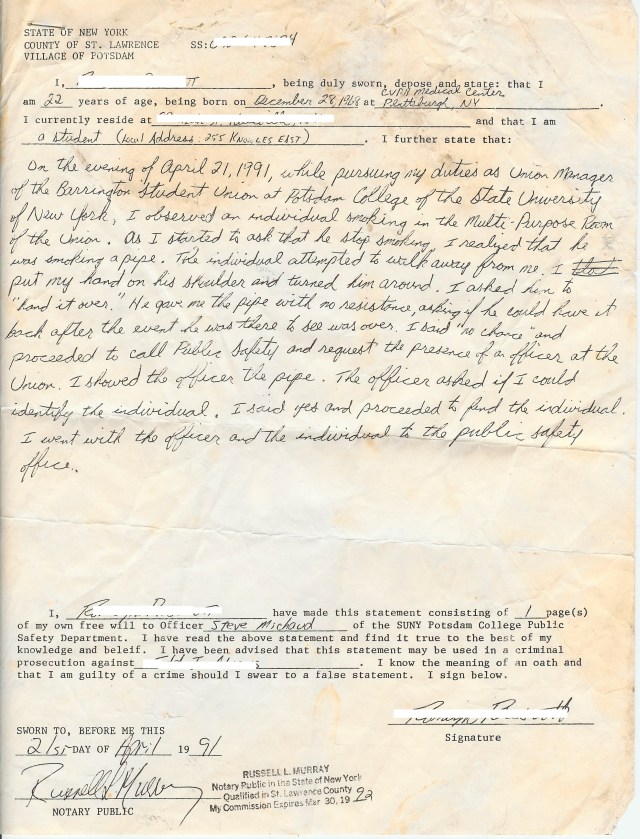 STATE OF NEW YORK
COUNTY OF ST. LAWRENCE SS:
VILLAGE OF POTSDAM
I, , being duly sworn, depose and state: that I
CVPH Medical Center
am 22 years of age, being born on December 28, 1968 at Plattsburgh, NY .
I currently reside at and that I am
a student (Local Address: 255 Knowles East) . I further state that:
On the evening of April 21, 1991, while pursuing my duties as Union Manager
of the Barrington Student Union at Potsdam College of the State University
of New York, I observed an individual smoking in the Multi-Purpose Room
of the Union. As I started to ask that he stop smoking, I realized that he
was smoking a pipe. The individual attempted to walk away from me. I
put my hand on his shoulder and turned him around. I asked him to
"hand it over." He gave me the pipe with no resistance, asking if he could have it
back after the event he was there to see was over. I said "no chance" and
proceeded to call Public Safety and request the presence of an officer at the
Union. I showed the officer the pipe. The officer asked if I could
identify the individual. I said yes and proceeded to find the individual.
I went with the officer and the individual to the public safety
office.
I, have made this statement consisting of 1 page(s)
of my own free will to Officer Steve Michaud of the SUNY Potsdam College Public
Safety Department. I have read the above statement and find it true to the best of my
knowledge and beleif. I have been advised that this statement may be used in a criminal
prosecution against . I know the meaning of an oath and
that I am guilty of a crime should I swear to a false statement. I sign below.
Signature
SWORN TO, BEFORE ME THIS
21st DAY OF April 19 91
Russell L Murray
NOTARY PUBLIC
RUSSELL L. MURRAY
Notary Public in the State of New York
Qualified in St. Lawrence County
My Commission Expires Mar 30, 19 92